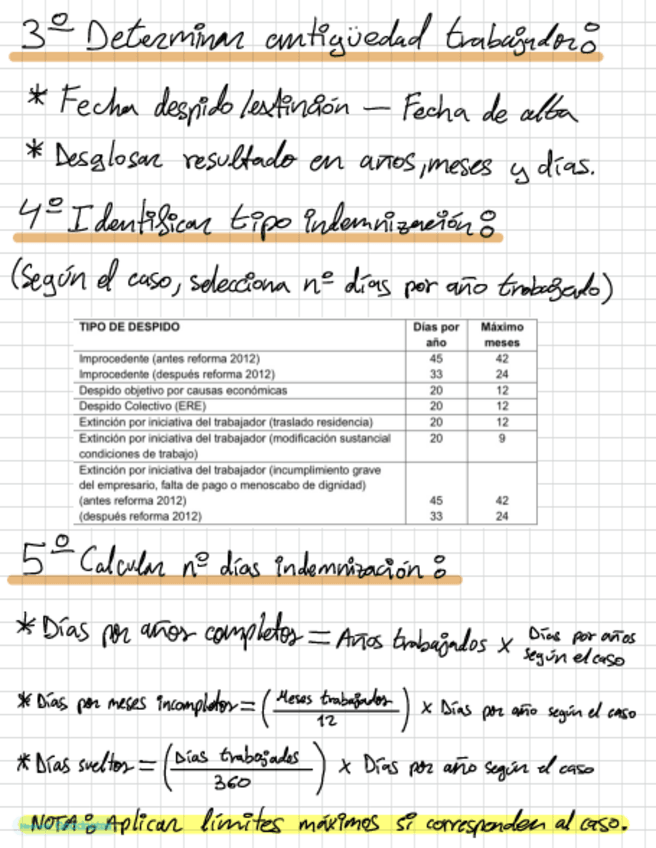 3º Determinar antigüedad trabajador:
* Fecha despido/extinción — Fecha de alta
* Desglosar resultado en años, meses y días.
4º Identificar tipo indemnización:
(Según el caso, selecciona nº días por año trabajado)
TIPO DE DESPIDO Días por año Máximo meses
Improcedente (antes reforma 2012) 45 42
Improcedente (después reforma 2012) 33 24
Despido objetivo por causas económicas 20 12
Despido Colectivo (ERE) 20 12
Extinción por iniciativa del trabajador (traslado residencia) 20 12
Extinción por iniciativa del trabajador (modificación sustancial 20 9
condiciones de trabajo)
Extinción por iniciativa del trabajador (incumplimiento grave
del empresario, falta de pago o menoscabo de dignidad)
(antes reforma 2012) 45 42
(después reforma 2012) 33 24
5º Calcular nº días indemnización:
* Días por años completos = Años trabajados x Días por años según el caso
* Días por meses incompletos = (Meses trabajados / 12) x Días por año según el caso
* Días sueltos = (Días trabajados / 360) x Días por año según el caso
NOTA: Aplicar límites máximos si corresponden al caso.